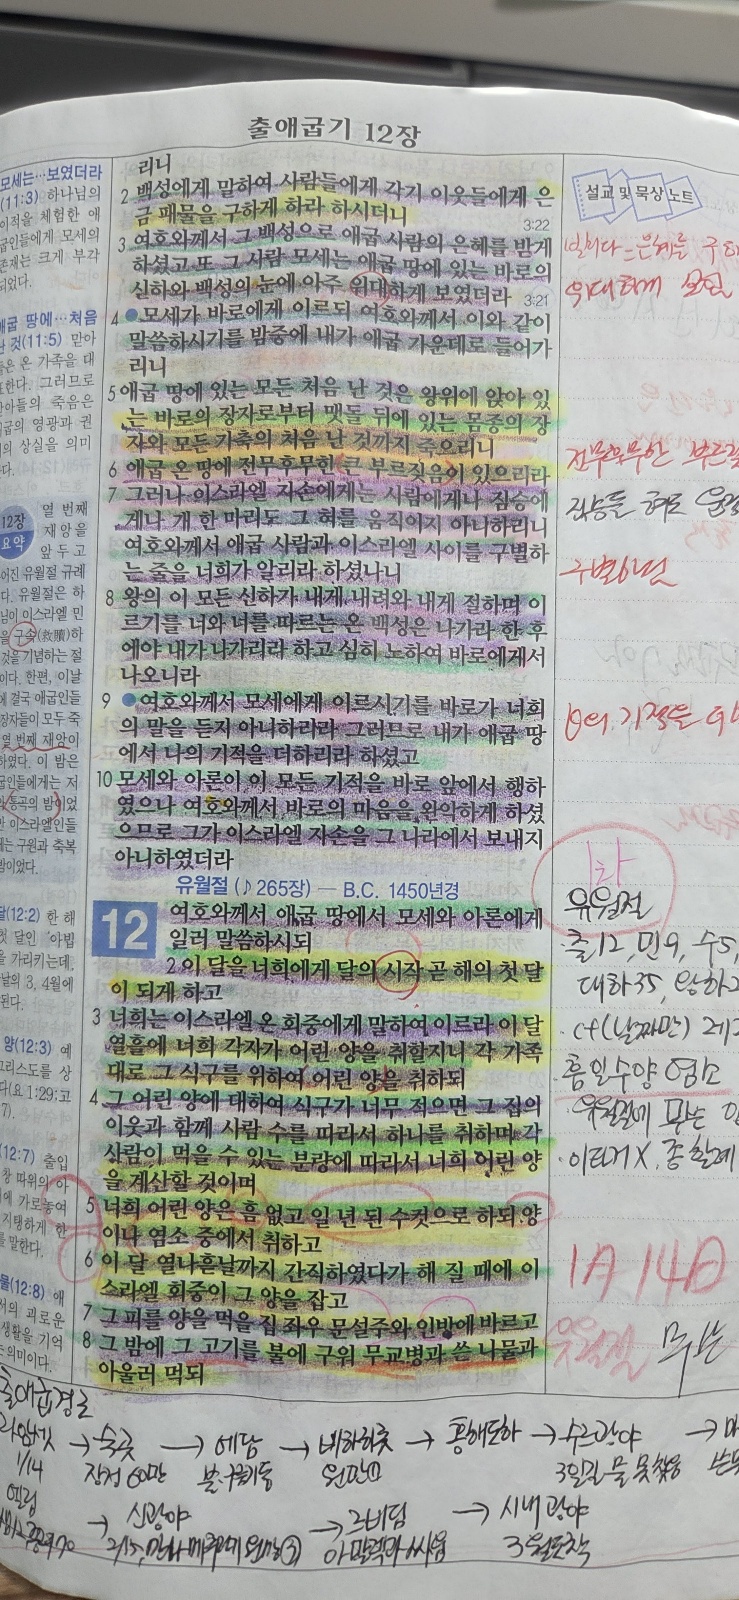 출애굽기 12장
모세는…보였더라
(11:3) 하나님의
이적을 체험한 애
굽인들에게 모세의
존재는 크게 부각
되었다.
애굽 땅에…처음
난 것(11:5) 맏아
들은 온 가족을 대
표한다. 그러므로
맏아들의 죽음은
애굽의 영광과 권
의 상실을 의미
다.
12장
요약
열 번째
재앙을
앞두고
어진 유월절 규례
다. 유월절은 하
님이 이스라엘 민
을 구속(救贖)하
것을 기념하는 절
이다. 한편, 이날
에 결국 애굽인들
장자들이 모두 죽
열 번째 재앙이
하였다. 이 밤은
굽인들에게는 저
와 통곡의 밤이었
만 이스라엘인들
게는 구원과 축복
밤이었다.
달(12:2) 한 해
첫 달인 '아빕
을 가리키는데,
날의 3, 4월에
된다.
양(12:3) 예
그리스도를 상
다(요 1:29;고
7).
(12:7) 출입
창 따위의 아
에 가로놓여
지탱하게 한
를 말한다.
물(12:8) 애
서의 괴로운
생활을 기억
는 의미이다.
리니
2 백성에게 말하여 사람들에게 각기 이웃들에게 은
금 패물을 구하게 하라 하시더니
3:22
3 여호와께서 그 백성으로 애굽 사람의 은혜를 받게
하셨고 또 그 사람 모세는 애굽 땅에 있는 바로의
신하와 백성의 눈에 아주 위대하게 보였더라 3:21
4 ●모세가 바로에게 이르되 여호와께서 이와 같이
말씀하시기를 밤중에 내가 애굽 가운데로 들어가
리니
5 애굽 땅에 있는 모든 처음 난 것은 왕위에 앉아 있
는 바로의 장자로부터 맷돌 뒤에 있는 몸종의 장
자와 모든 가축의 처음 난 것까지 죽으리니
6 애굽 온 땅에 전무후무한 큰 부르짖음이 있으리라
7 그러나 이스라엘 자손에게는 사람에게나 짐승에
게나 개 한 마리도 그 혀를 움직이지 아니하리니
여호와께서 애굽 사람과 이스라엘 사이를 구별하
는 줄을 너희가 알리라 하셨나니
8 왕의 이 모든 신하가 내게 내려와 내게 절하며 이
르기를 너와 너를 따르는 온 백성은 나가라 한 후
에야 내가 나가리라 하고 심히 노하여 바로에게서
나오니라
9 ●여호와께서 모세에게 이르시기를 바로가 너희
의 말을 듣지 아니하리라 그러므로 내가 애굽 땅
에서 나의 기적을 더하리라 하셨고
10 모세와 아론이 이 모든 기적을 바로 앞에서 행하
였으나 여호와께서 바로의 마음을 완악하게 하셨
으므로 그가 이스라엘 자손을 그 나라에서 보내지
아니하였더라
유월절 (♪265장) — B.C. 1450년경
12 여호와께서 애굽 땅에서 모세와 아론에게
일러 말씀하시되
2 이 달을 너희에게 달의 시작 곧 해의 첫 달
이 되게 하고
3 너희는 이스라엘 온 회중에게 말하여 이르라 이 달
열흘에 너희 각자가 어린 양을 취할지니 각 가족
대로 그 식구를 위하여 어린 양을 취하되
4 그 어린 양에 대하여 식구가 너무 적으면 그 집의
이웃과 함께 사람 수를 따라서 하나를 취하며 각
사람이 먹을 수 있는 분량에 따라서 너희 어린 양
을 계산할 것이며
5 너희 어린 양은 흠 없고 일 년 된 수컷으로 하되 양
이나 염소 중에서 취하고
6 이 달 열나흗날까지 간직하였다가 해 질 때에 이
스라엘 회중이 그 양을 잡고
7 그 피를 양을 먹을 집 좌우 문설주와 인방에 바르고
8 그 밤에 그 고기를 불에 구워 무교병과 쓴 나물과
아울러 먹되
설교 및 묵상 노트
은혜를 구하
위대하게 보인
전무후무한 부르짖
구별하심
유월절
출12, 민9, 수5,
대하35, 왕하2
cf(날짜만) 레2
흠 일 수 양 염소
1月 14日
유월절
출애굽경로
라암셋 → 숙곳 → 에담 → 비하히롯 → 홍해도하 → 수르광야 → 마
1/14 장정 60만 불·구름기둥 원망① 3일길 물 못찾음
엘림 → 신광야 → 르비딤 → 시내 광야
아말렉과 싸움 3월도착